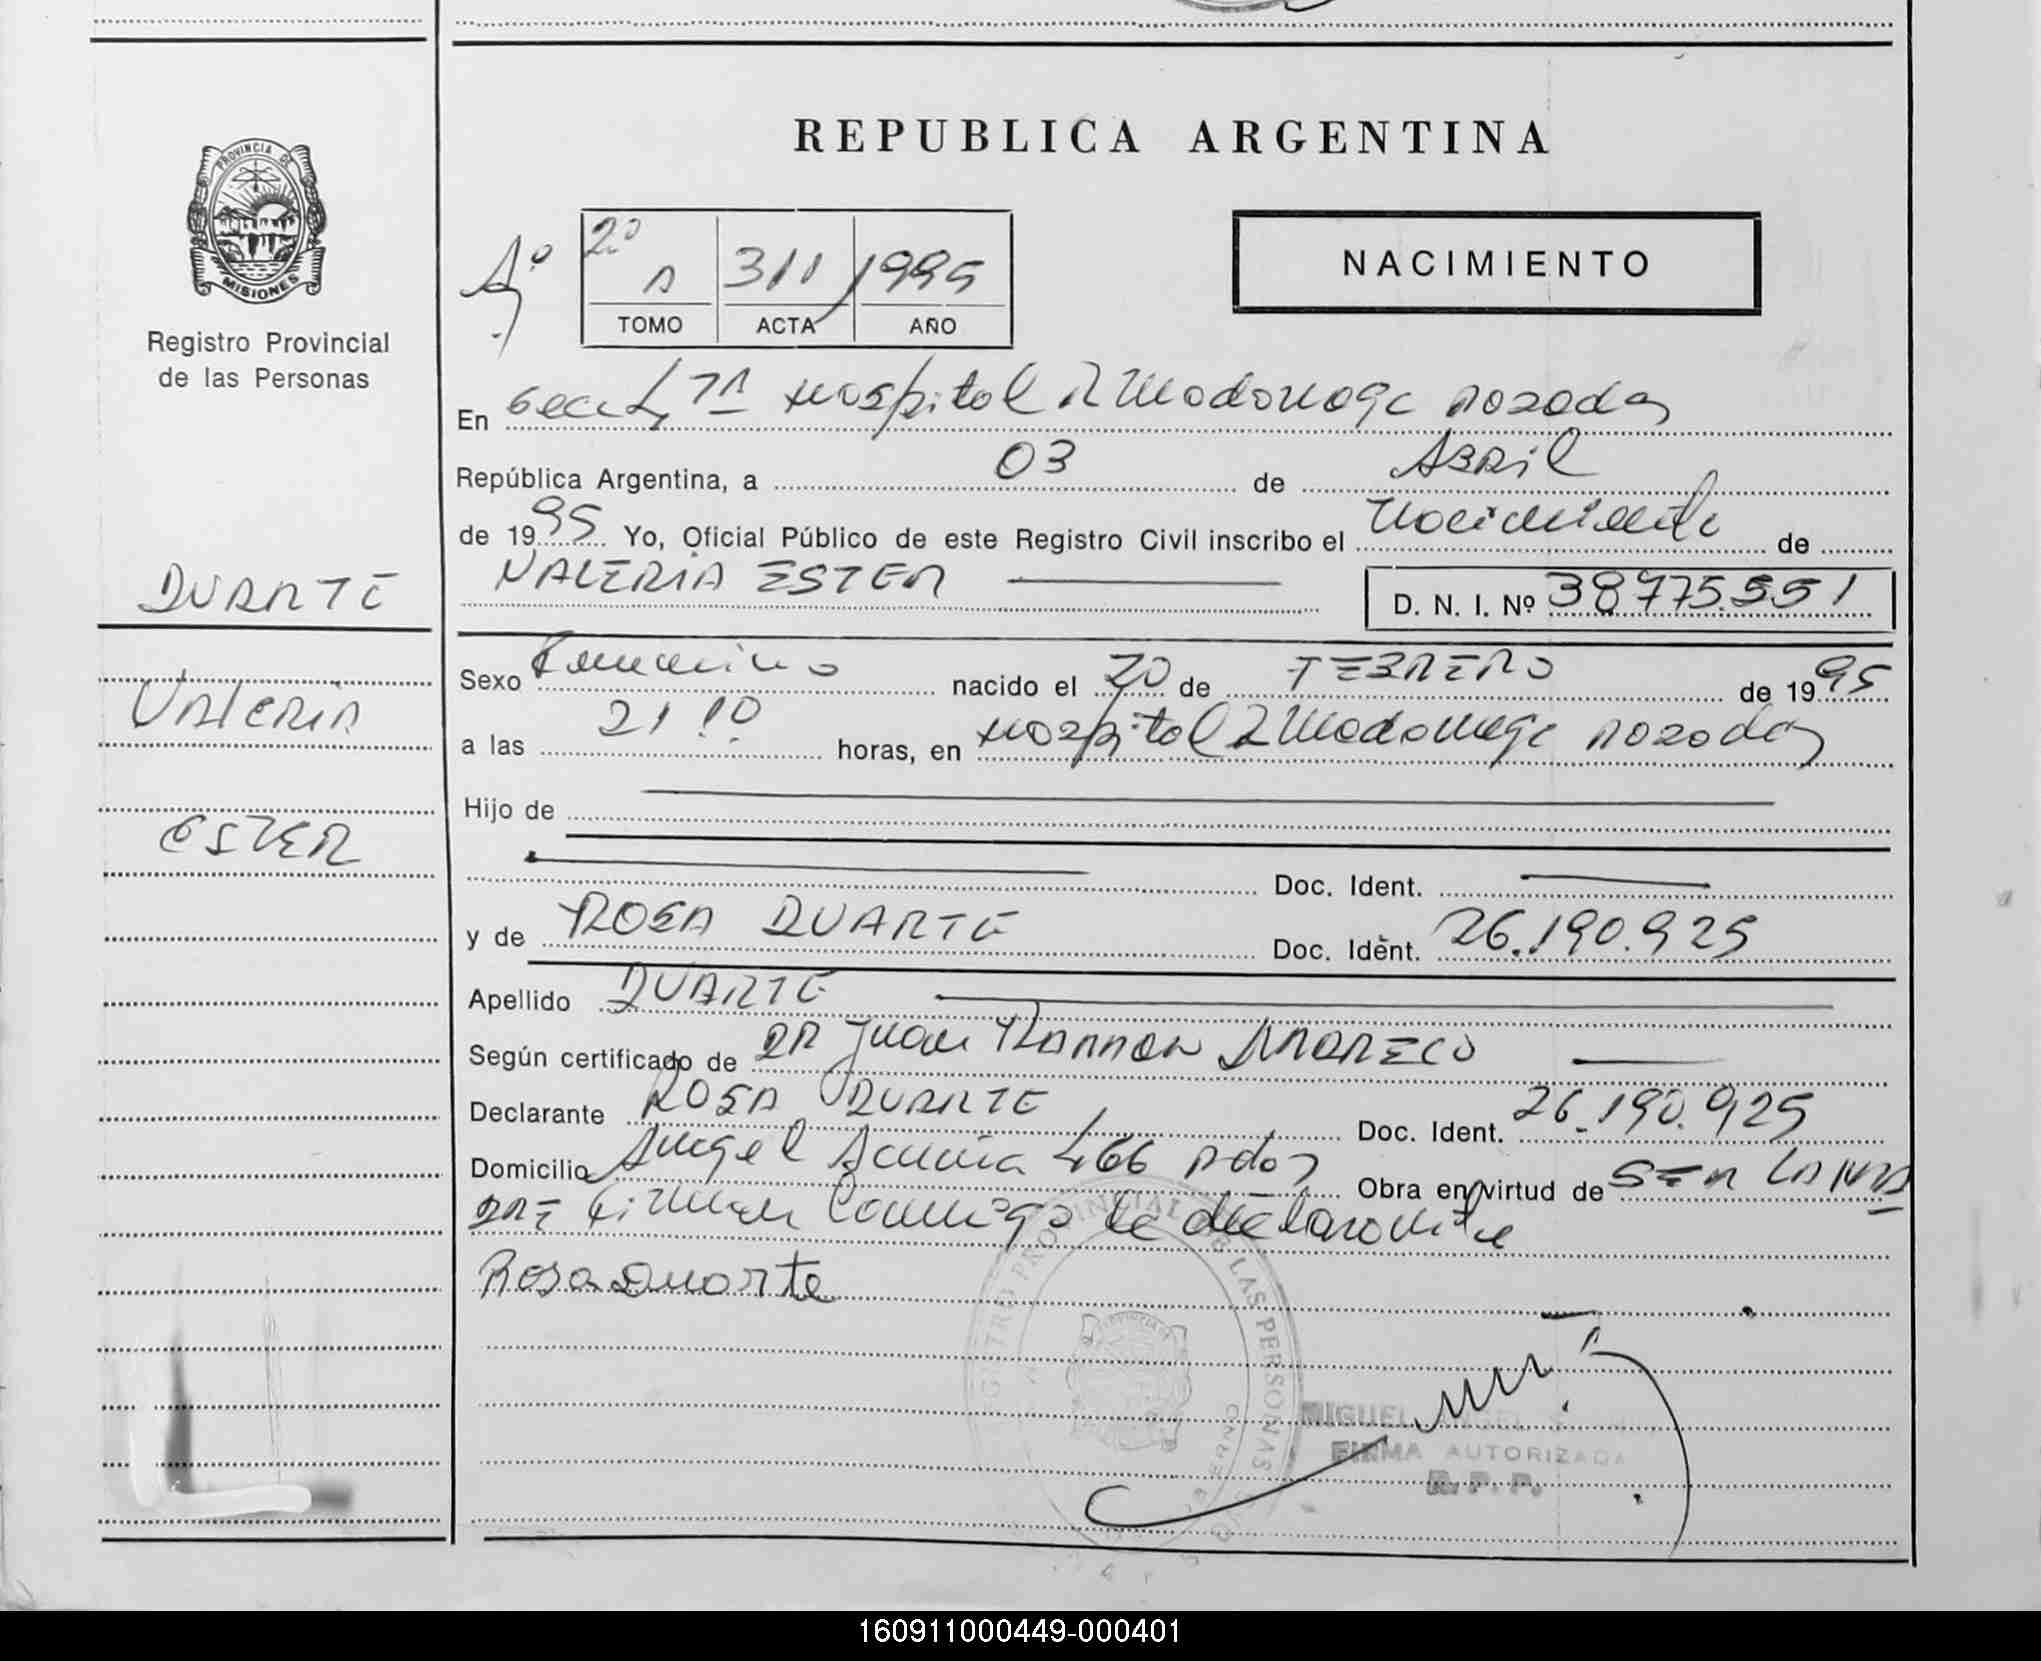 REPUBLICA ARGENTINA
PROVINCIA DE
MISIONES
Registro Provincial
de las Personas
2º
A 311 1995
TOMO ACTA AÑO
NACIMIENTO
En Secc 7A Hospital R Madariaga Posadas
República Argentina, a 03 de Abril
de 1995 Yo, Oficial Público de este Registro Civil inscribo el nacimiento de
VALERIA ESTER D. N. I. Nº 38775.551
DUARTE
VALERIA
ESTER
Sexo Femenino nacido el 20 de FEBRERO de 1995
a las 21 10 horas, en Hospital R Madariaga Posadas
Hijo de
Doc. Ident.
y de ROSA DUARTE Doc. Ident. 26.190.925
Apellido DUARTE
Según certificado de DR Juan RAMON
Declarante ROSA DUARTE Doc. Ident. 26.190.925
Domicilio Angel Acuña 466 Pdas Obra en virtud de SER LA MA
DRE Firman Conmigo la declarante
Rosa Duarte
REGISTRO PROVINCIAL DE LAS PERSONAS
MIGUEL ANGEL
FIRMA AUTORIZADA
R. P. P.
160911000449-000401